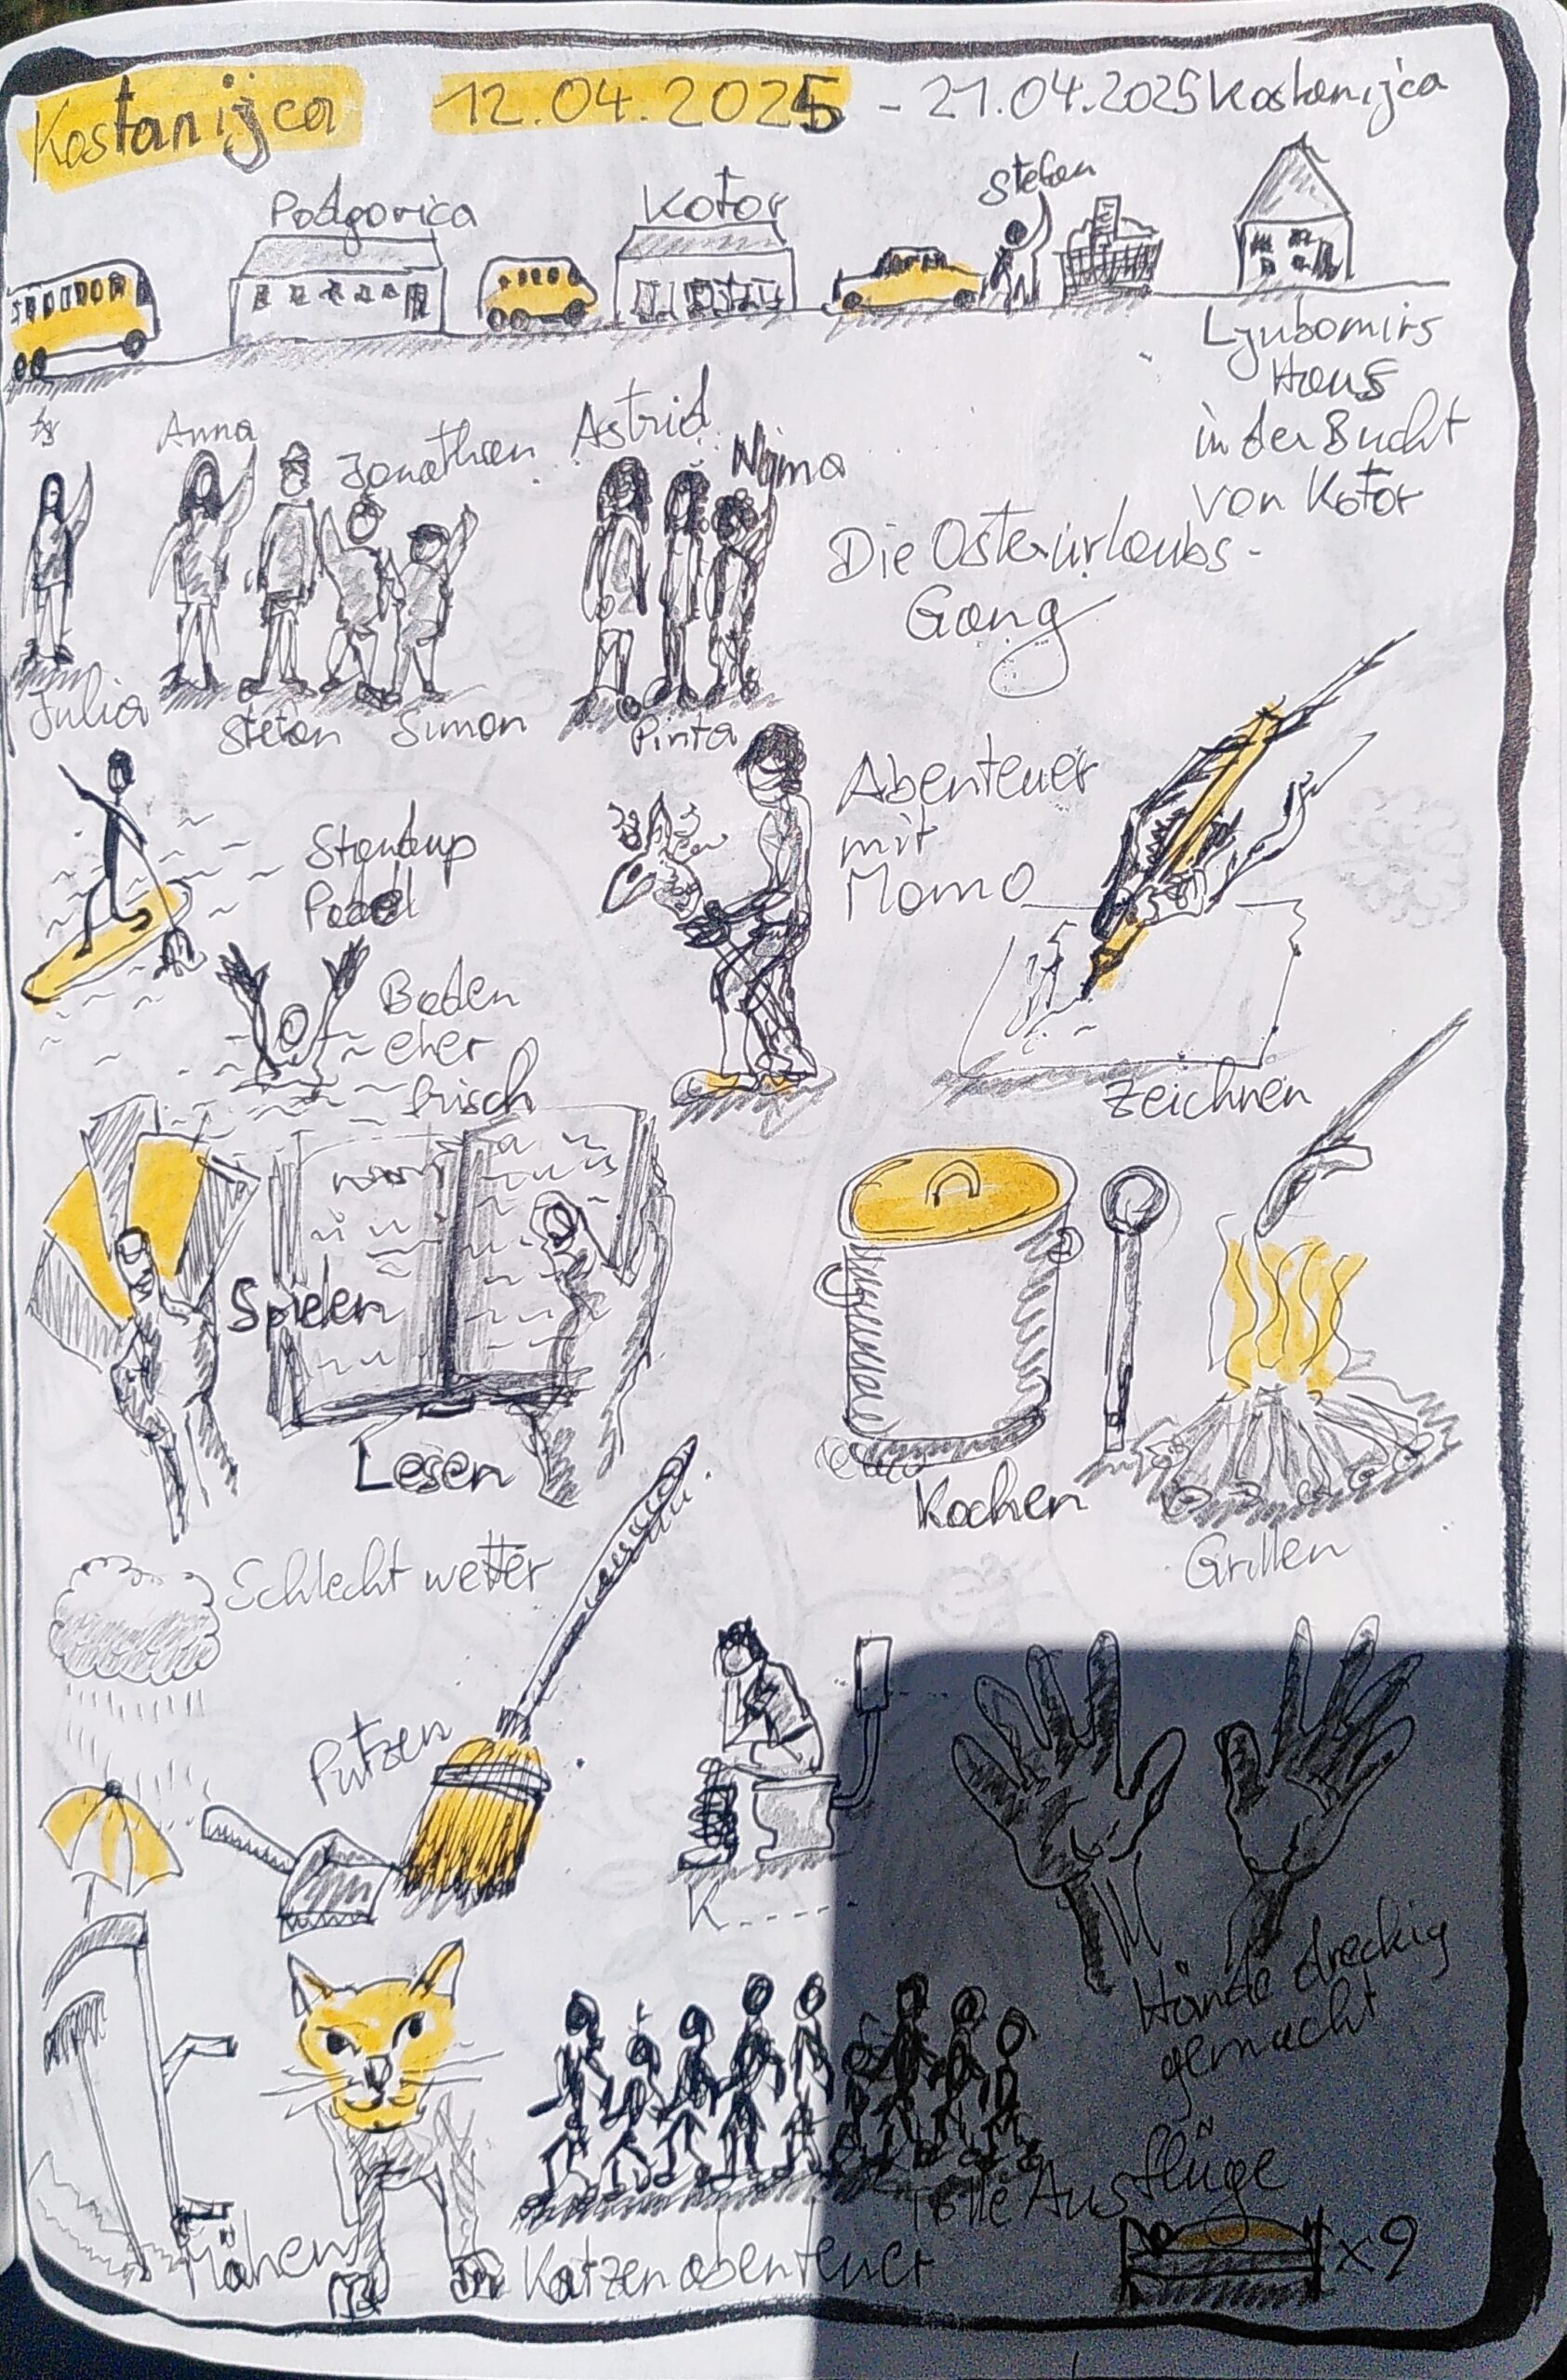 Kostanijca 12.04.2025 - 21.04.2025 Kostanijca
Podgorica
Kotor
Stefan
Ljubomirs
Haus
in der Bucht
von Kotor
Anna
Jonathan
Astrid
Noma
Die Osterurlaubs-
Gang
Julia
Stefan
Simon
Pinta
Standup
Padel
Abenteuer
mit
Momo
Baden
eher
frisch
Zeichnen
Spielen
Lesen
Kochen
Grillen
Schlecht wetter
Putzen
K------
Hände dreckig
gemacht
Mähen
Katzenabenteuer
Tolle Ausflüge
x9